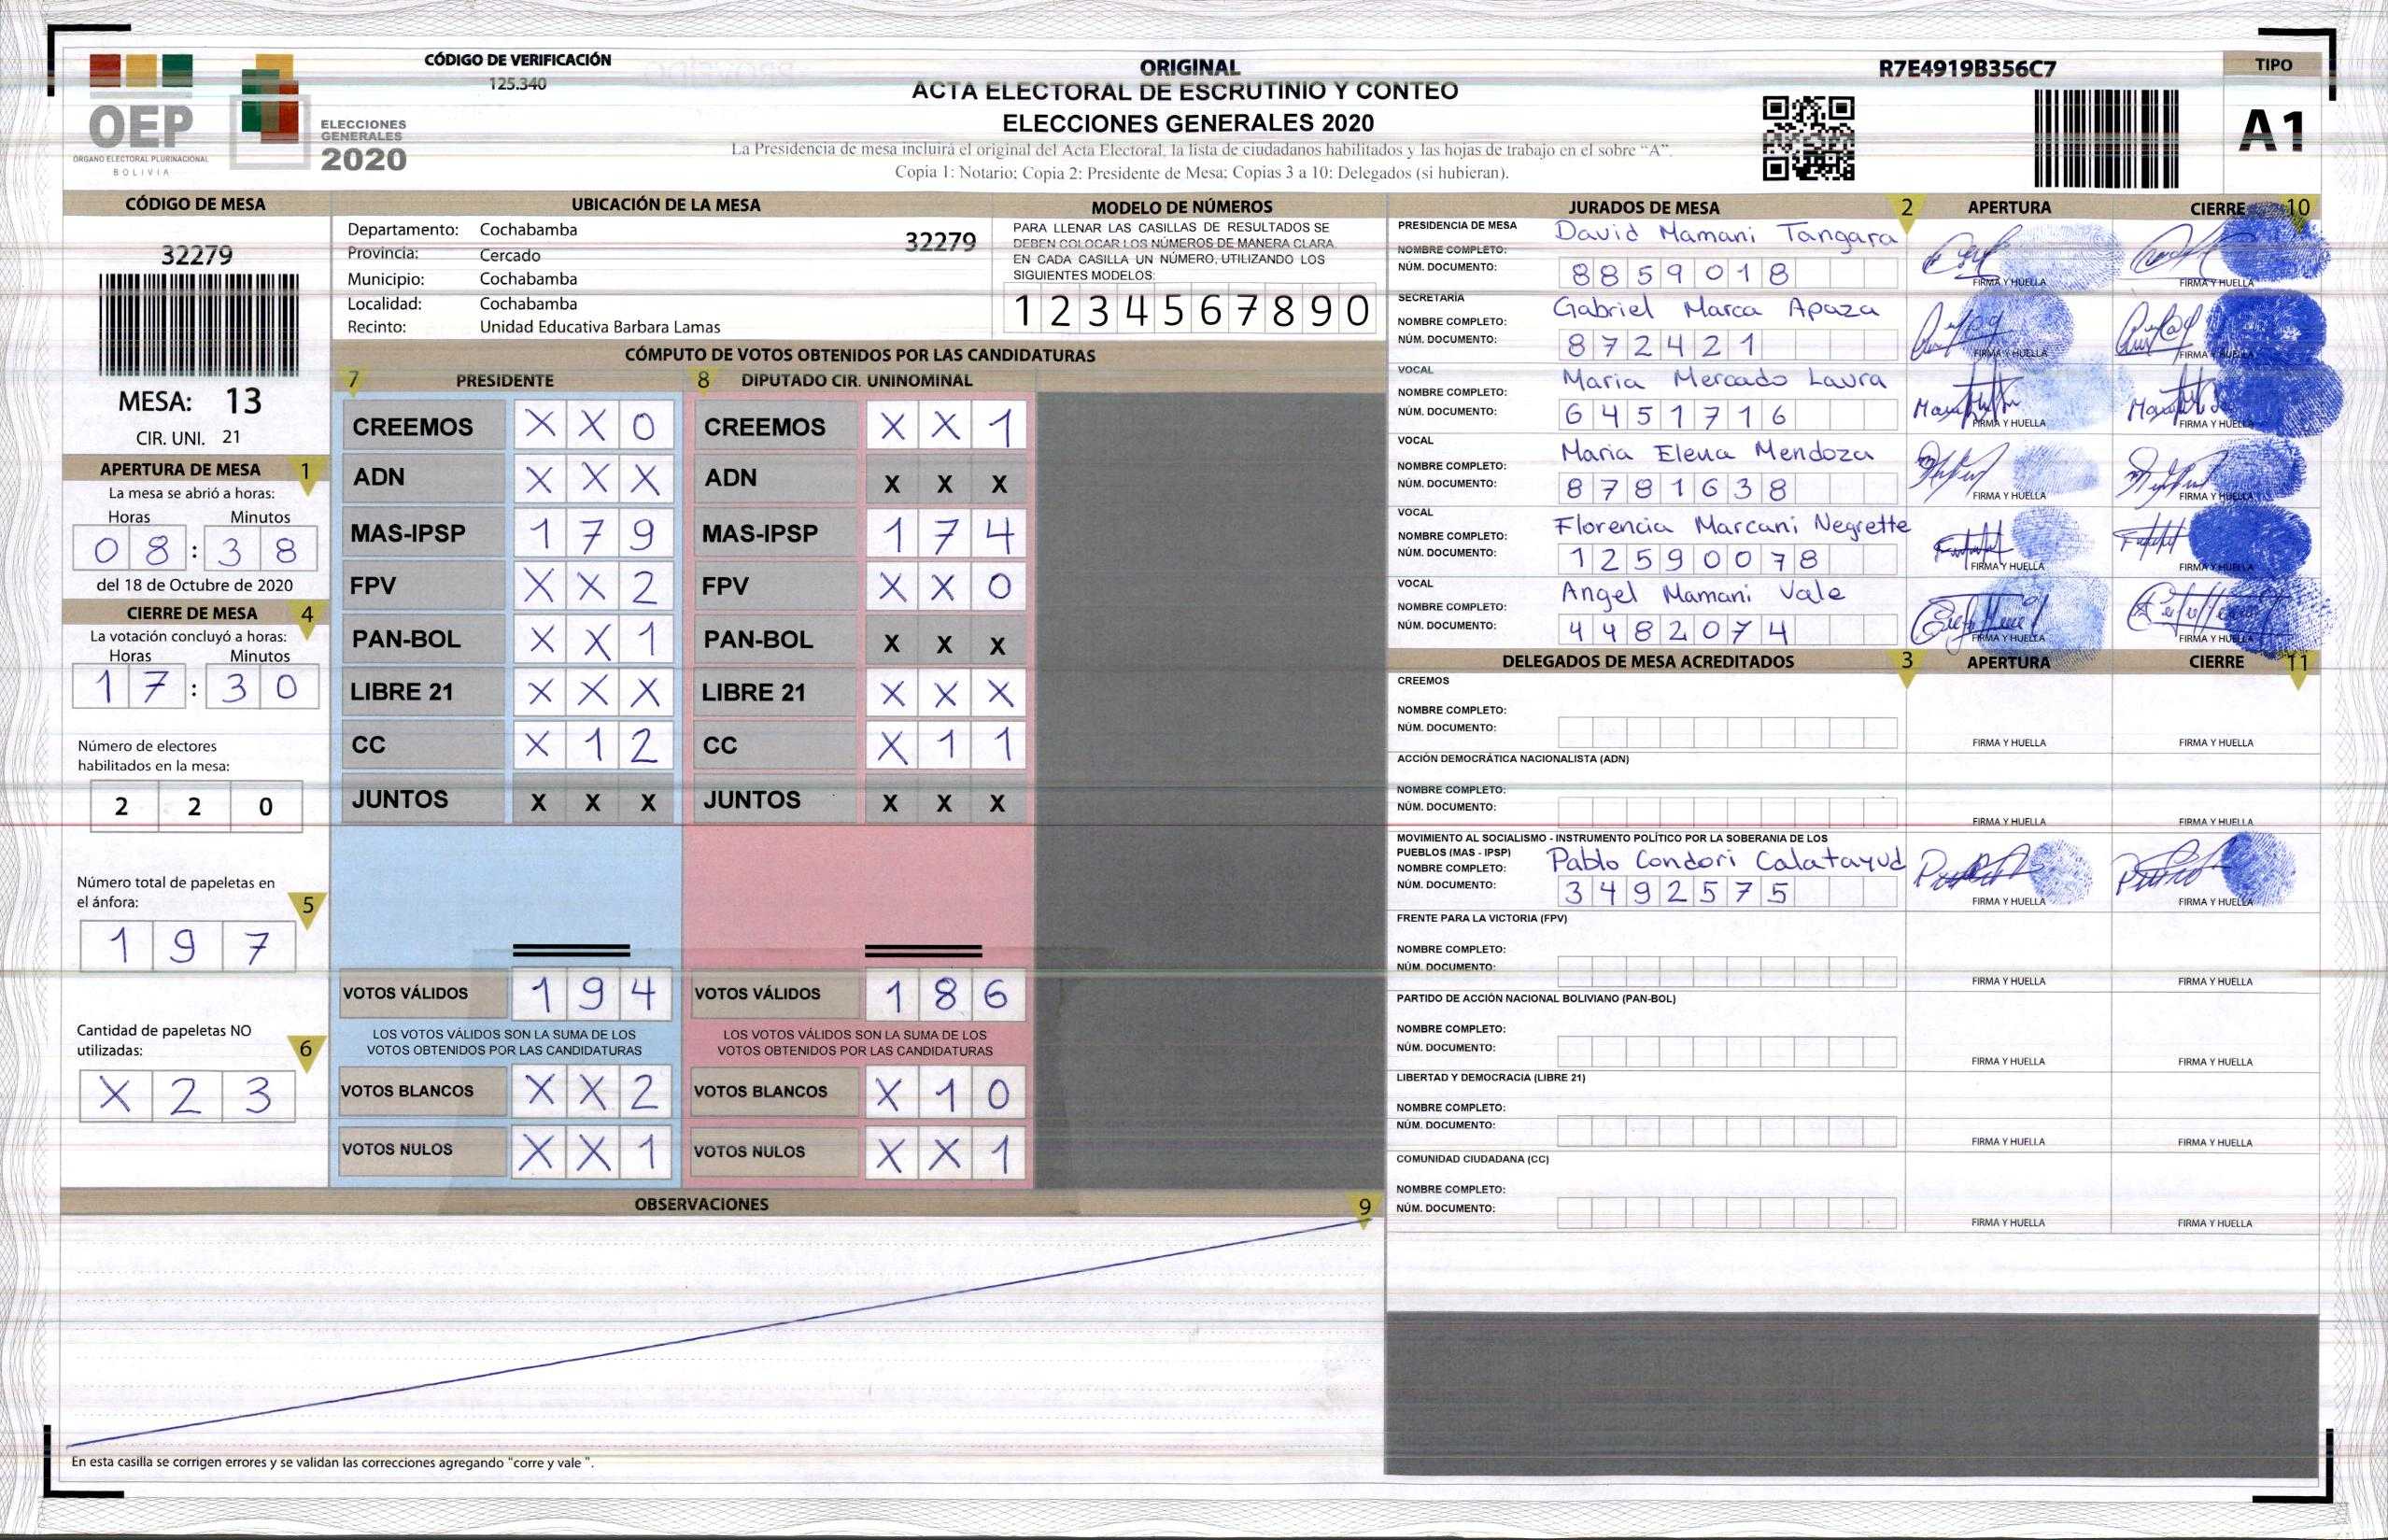 CÓDIGO DE VERIFICACIÓN
125.340
OEP
ÓRGANO ELECTORAL PLURINACIONAL
BOLIVIA
ELECCIONES
GENERALES
2020
ORIGINAL
ACTA ELECTORAL DE ESCRUTINIO Y CONTEO
ELECCIONES GENERALES 2020
La Presidencia de mesa incluirá el original del Acta Electoral, la lista de ciudadanos habilitados y las hojas de trabajo en el sobre “A”.
Copia 1: Notario; Copia 2: Presidente de Mesa; Copias 3 a 10: Delegados (si hubieran).
R7E4919B356C7
TIPO
A1
CÓDIGO DE MESA
32279
MESA: 13
CIR. UNI. 21
APERTURA DE MESA 1
La mesa se abrió a horas:
Horas Minutos
0 8 : 3 8
del 18 de Octubre de 2020
CIERRE DE MESA 4
La votación concluyó a horas:
Horas Minutos
1 7 : 3 0
Número de electores
habilitados en la mesa:
2 2 0
Número total de papeletas en
el ánfora: 5
1 9 7
Cantidad de papeletas NO
utilizadas: 6
X 2 3
UBICACIÓN DE LA MESA
Departamento: Cochabamba
32279
Provincia: Cercado
Municipio: Cochabamba
Localidad: Cochabamba
Recinto: Unidad Educativa Barbara Lamas
MODELO DE NÚMEROS
PARA LLENAR LAS CASILLAS DE RESULTADOS SE
DEBEN COLOCAR LOS NÚMEROS DE MANERA CLARA.
EN CADA CASILLA UN NÚMERO, UTILIZANDO LOS
SIGUIENTES MODELOS:
1 2 3 4 5 6 7 8 9 0
CÓMPUTO DE VOTOS OBTENIDOS POR LAS CANDIDATURAS
7 PRESIDENTE 8 DIPUTADO CIR. UNINOMINAL
CREEMOS X X 0 CREEMOS X X 1
ADN X X X ADN X X X
MAS-IPSP 1 7 9 MAS-IPSP 1 7 4
FPV X X 2 FPV X X 0
PAN-BOL X X 1 PAN-BOL X X X
LIBRE 21 X X X LIBRE 21 X X X
CC X 1 2 CC X 1 1
JUNTOS X X X JUNTOS X X X
VOTOS VÁLIDOS 1 9 4 VOTOS VÁLIDOS 1 8 6
LOS VOTOS VÁLIDOS SON LA SUMA DE LOS LOS VOTOS VÁLIDOS SON LA SUMA DE LOS
VOTOS OBTENIDOS POR LAS CANDIDATURAS VOTOS OBTENIDOS POR LAS CANDIDATURAS
VOTOS BLANCOS X X 2 VOTOS BLANCOS X 1 0
VOTOS NULOS X X 1 VOTOS NULOS X X 1
OBSERVACIONES 9
En esta casilla se corrigen errores y se validan las correcciones agregando "corre y vale ".
JURADOS DE MESA 2 APERTURA CIERRE 10
PRESIDENCIA DE MESA
NOMBRE COMPLETO: David Mamani Tangara
NÚM. DOCUMENTO: 8 8 5 9 0 1 8
FIRMA Y HUELLA FIRMA Y HUELLA
SECRETARÍA
NOMBRE COMPLETO: Gabriel Marca Apaza
NÚM. DOCUMENTO: 8 7 2 4 2 1
FIRMA Y HUELLA FIRMA Y HUELLA
VOCAL
NOMBRE COMPLETO: Maria Mercado Laura
NÚM. DOCUMENTO: 6 4 5 1 7 1 6
FIRMA Y HUELLA FIRMA Y HUELLA
VOCAL
NOMBRE COMPLETO: Maria Elena Mendoza
NÚM. DOCUMENTO: 8 7 8 1 6 3 8
FIRMA Y HUELLA FIRMA Y HUELLA
VOCAL
NOMBRE COMPLETO: Florencia Marcani Negrette
NÚM. DOCUMENTO: 1 2 5 9 0 0 7 8
FIRMA Y HUELLA FIRMA Y HUELLA
VOCAL
NOMBRE COMPLETO: Angel Mamani Vale
NÚM. DOCUMENTO: 4 4 8 2 0 7 4
FIRMA Y HUELLA FIRMA Y HUELLA
DELEGADOS DE MESA ACREDITADOS 3 APERTURA CIERRE 11
CREEMOS
NOMBRE COMPLETO:
NÚM. DOCUMENTO:
FIRMA Y HUELLA FIRMA Y HUELLA
ACCIÓN DEMOCRÁTICA NACIONALISTA (ADN)
NOMBRE COMPLETO:
NÚM. DOCUMENTO:
FIRMA Y HUELLA FIRMA Y HUELLA
MOVIMIENTO AL SOCIALISMO - INSTRUMENTO POLÍTICO POR LA SOBERANIA DE LOS
PUEBLOS (MAS - IPSP)
NOMBRE COMPLETO: Pablo Condori Calatayud
NÚM. DOCUMENTO: 3 4 9 2 5 7 5
FIRMA Y HUELLA FIRMA Y HUELLA
FRENTE PARA LA VICTORIA (FPV)
NOMBRE COMPLETO:
NÚM. DOCUMENTO:
FIRMA Y HUELLA FIRMA Y HUELLA
PARTIDO DE ACCIÓN NACIONAL BOLIVIANO (PAN-BOL)
NOMBRE COMPLETO:
NÚM. DOCUMENTO:
FIRMA Y HUELLA FIRMA Y HUELLA
LIBERTAD Y DEMOCRACIA (LIBRE 21)
NOMBRE COMPLETO:
NÚM. DOCUMENTO:
FIRMA Y HUELLA FIRMA Y HUELLA
COMUNIDAD CIUDADANA (CC)
NOMBRE COMPLETO:
NÚM. DOCUMENTO:
FIRMA Y HUELLA FIRMA Y HUELLA